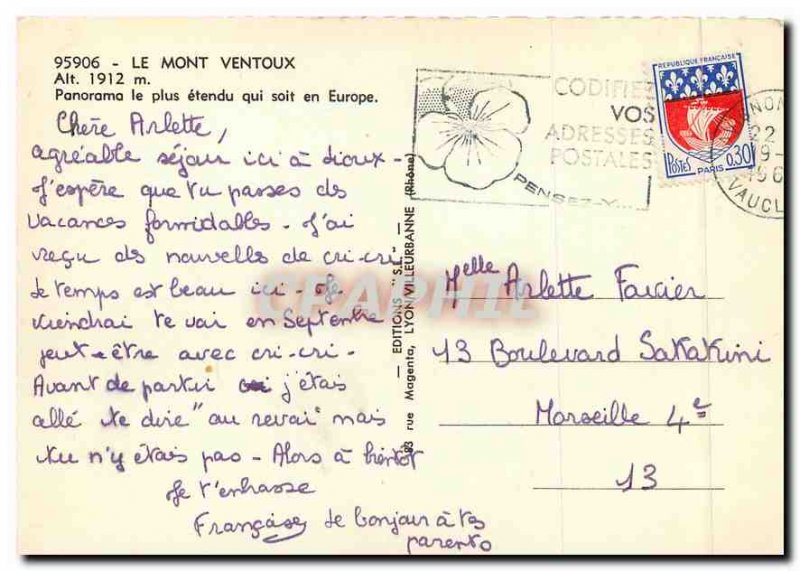 95906 - LE MONT VENTOUX
Alt. 1912 m.
Panorama le plus étendu qui soit en Europe.
Chère Arlette,
agréable séjour ici à Sioux -
J'espère que tu passes des
vacances formidables - J'ai
reçu des nouvelles de cri-cri
Le temps est beau ici - Je
viendrai te voir en Septembre
peut-être avec cri-cri -
Avant de partir j'étais
allé te dire "au revoir" mais
tu n'y étais pas - Alors à bientôt
Je t'embrasse
Françoise le bonjour à tes
parents
EDITIONS "S.L." -
93 rue Magenta, LYON-VILLEURBANNE (Rhône)
CODIFIEZ
VOS
ADRESSES
POSTALES
PENSEZ-Y...
REPUBLIQUE FRANÇAISE
POSTES
0,30
PARIS
22
VAUCL
Melle Arlette Faucier
13 Boulevard Sakakini
Marseille 4e
13
CPAPHIL